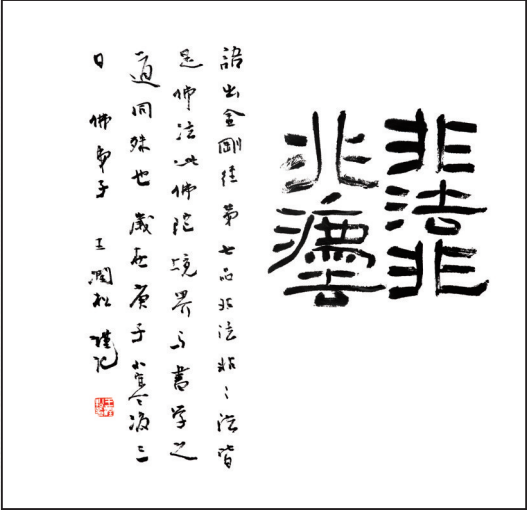 非法非
非灋
語出金剛経第七品非法非〻法皆
是佛法此佛陀境界与書学之
道同殊也歲在庚子小寒后三
日 佛弟子 王潤松 謹记